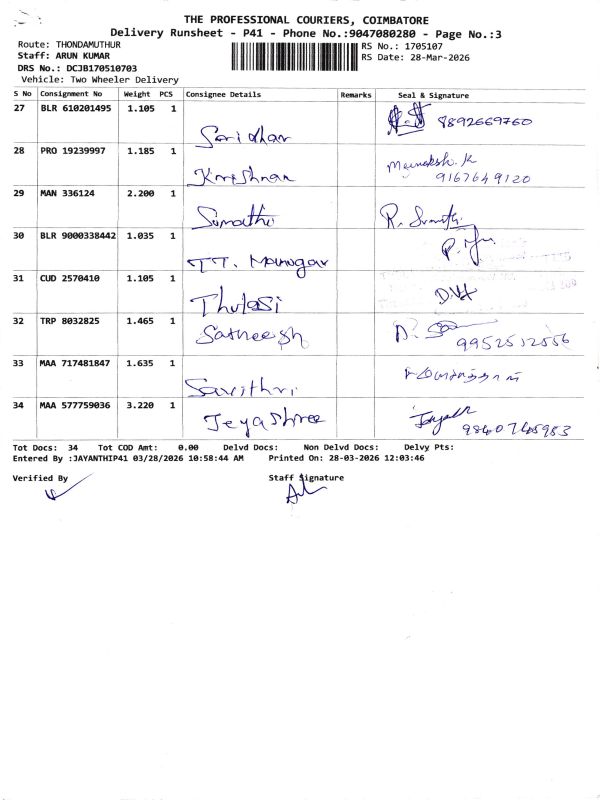 THE PROFESSIONAL COURIERS, COIMBATORE
Delivery Runsheet - P41 - Phone No.:9047080280 - Page No.:3
Route: THONDAMUTHUR
RS No.: 1705107
Staff: ARUN KUMAR
RS Date: 28-Mar-2026
DRS No.: DCJB170510703
Vehicle: Two Wheeler Delivery
S No Consignment No Weight PCS Consignee Details Remarks Seal & Signature
27 BLR 610201495 1.105 1 Saridhar 8892669760
28 PRO 19239997 1.185 1 Krishnan Meenaksh. K
9167649120
29 MAN 336124 2.200 1 Sumathi R. Sumathi
30 BLR 9000338442 1.035 1 TT. Manogar
31 CUD 2570410 1.105 1 Thulasi
32 TRP 8032825 1.465 1 Satheesh 9952512556
33 MAA 717481847 1.635 1 Savithri
34 MAA 577759036 3.220 1 Jeyashree 9840748983
Tot Docs: 34 Tot COD Amt: 0.00 Delvd Docs: Non Delvd Docs: Delvy Pts:
Entered By :JAYANTHIP41 03/28/2026 10:58:44 AM Printed On: 28-03-2026 12:03:46
Verified By Staff Signature